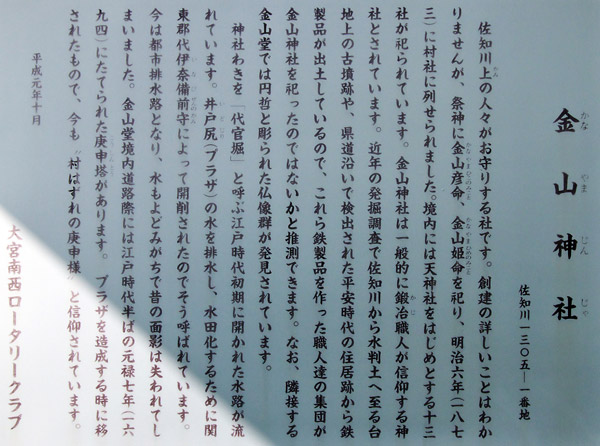 金山神社
かなやまじんじゃ
佐知川一三〇五―一番地
佐知川上の人々がお守りする社です。創建の詳しいことはわか
りませんが、祭神に金山彦命、金山姫命を祀り、明治六年(一八七
三)に村社に列せられました。境内には天神社をはじめとする十三
社が祀られています。金山神社は一般的に鍛冶職人が信仰する神
社とされています。近年の発掘調査で佐知川から水判土へ至る台
地上の古墳跡や、県道沿いで検出された平安時代の住居跡から鉄
製品が出土しているので、これら鉄製品を作った職人達の集団が
金山神社を祀ったのではないかと推測できます。なお、隣接する
金山堂では円哲と彫られた仏像群が発見されています。
神社わきを「代官堀」と呼ぶ江戸時代初期に開かれた水路が流
れています。井戸尻(プラザ)の水を排水し、水田化するために関
東郡代伊奈備前守によって開削されたのでそう呼ばれています。
今は都市排水路となり、水もよどみがちで昔の面影は失われてし
まいました。金山堂境内道路際には江戸時代半ばの元禄七年(一六
九四)にたてられた庚申塔があります。プラザを造成する時に移
されたもので、今も〝村はずれの庚申様〟と信仰されています。
平成元年十月
大宮南西ロータリークラブ